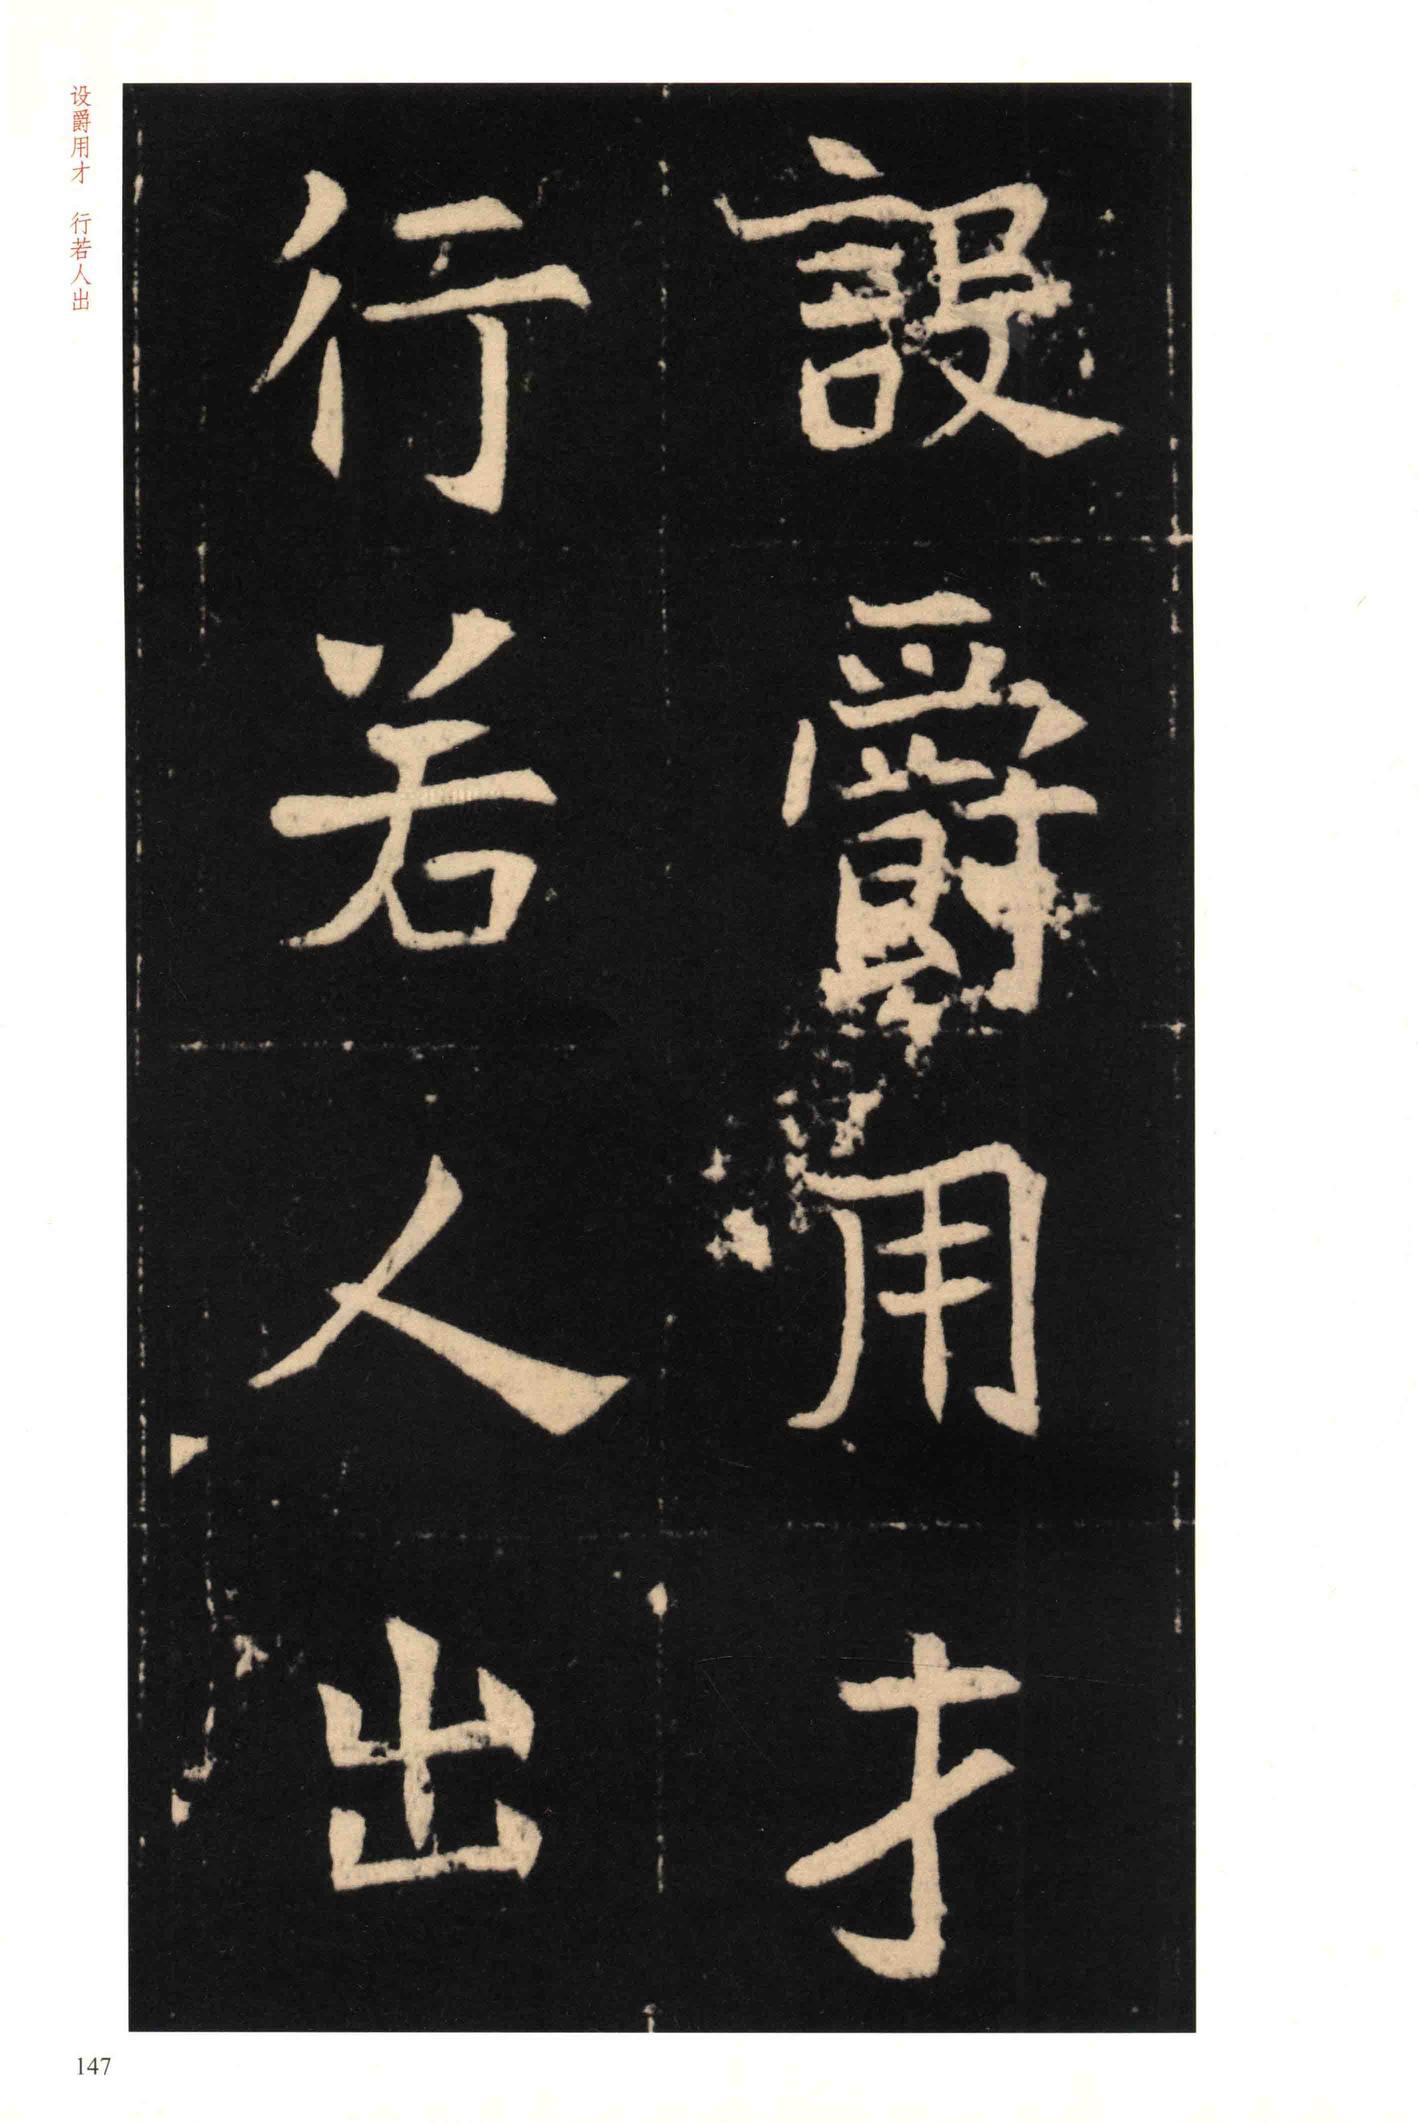 設爵用才
行若人出
设爵用才 行若人出
147